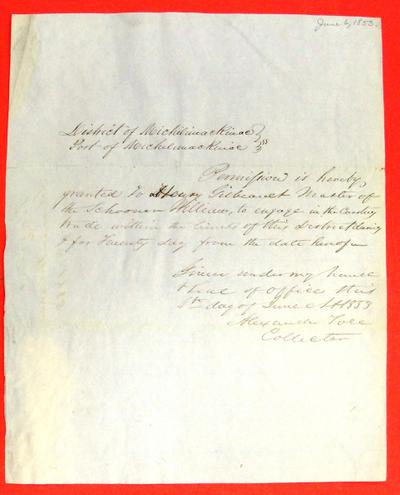 June 6, 1853.
District of Michilimackinac } ss
Port of Michilimackinac
Permission is hereby
granted to Henry Master of
the Schooner William, to engage in the Coasting
trade within the limits of this District during
& for Twenty day from the date hereof
Given under my hand
& seal of office this
6th day of June 1853
Alexander
Collector